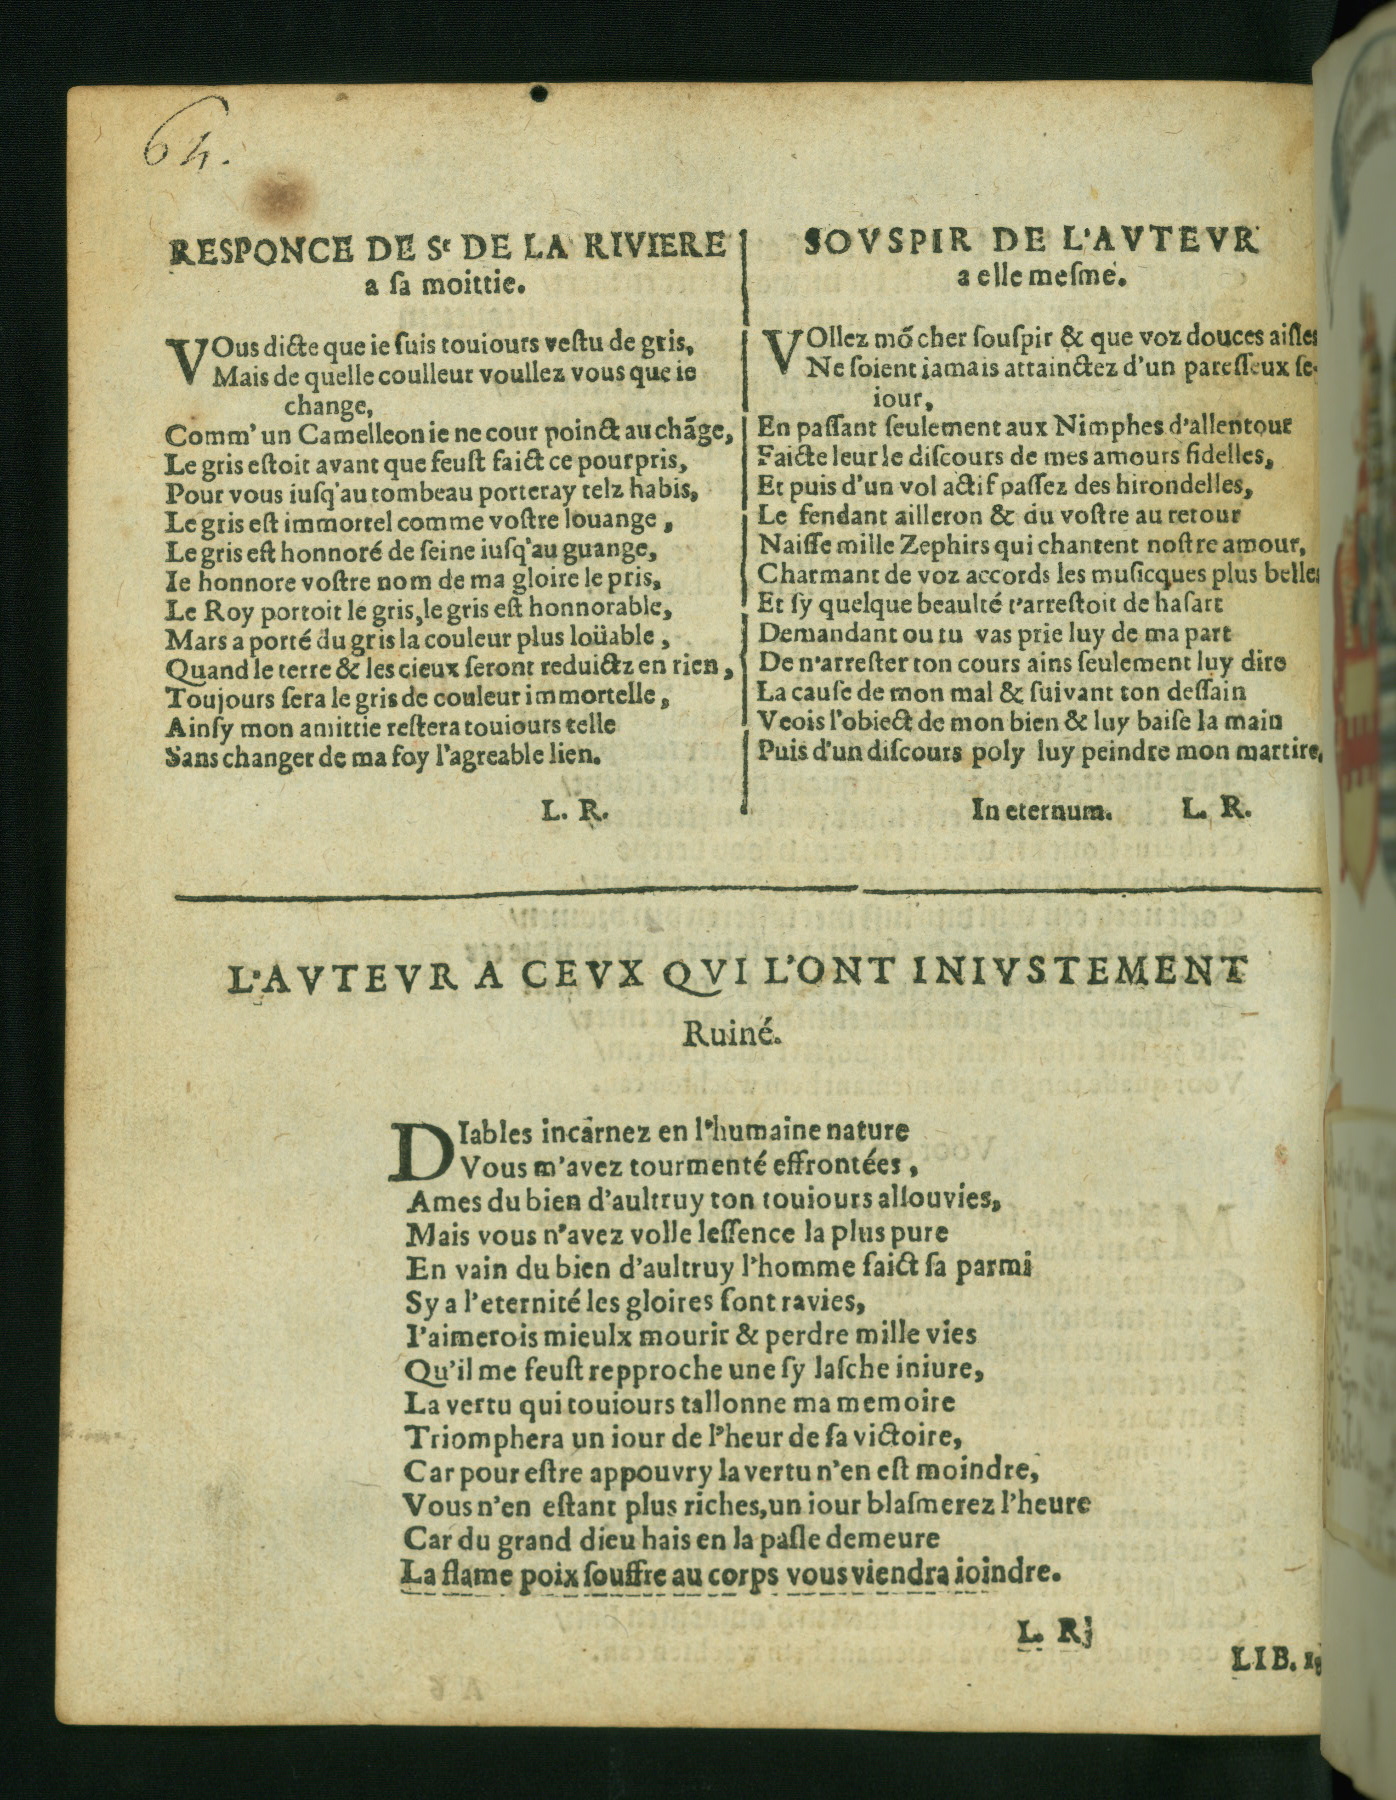 64.
RESPONCE DE Sr DE LA RIVIERE
a ſa moittie.
VOus dicte que ie ſuis touiours veſtu de gris,
Mais de quelle coulleur voullez vous que ie
change,
Comm' un Camelleon ie ne cour poinct au chãge,
Le gris eſtoit avant que feuſt faict ce pourpris,
Pour vous iuſq'au tombeau porteray telz habis,
Le gris eſt immortel comme voſtre louange ,
Le gris eſt honnoré de ſeine iuſq'au guange,
Ie honnore voſtre nom de ma gloire le pris,
Le Roy portoit le gris, le gris eſt honnorable,
Mars a porté du gris la couleur plus loüable ,
Quand le terre & les cieux ſeront reduictz en rien ,
Toujours ſera le gris de couleur immortelle ,
Ainſy mon amittie reſtera touiours telle
Sans changer de ma foy l'agreable lien.
L. R.
SOVSPIR DE L'AVTEVR
a elle meſme.
VOllez mõ cher ſouſpir & que voz douces aiſles
Ne ſoient iamais attainctez d'un pareſſeux ſe-
iour,
En paſſant ſeulement aux Nimphes d'allentour
Faicte leur le diſcours de mes amours fidelles,
Et puis d'un vol actif paſſez des hirondelles,
Le fendant ailleron & du voſtre au retour
Naiſſe mille Zephirs qui chantent noſtre amour,
Charmant de voz accords les muſicques plus belles
Et ſy quelque beaulté t'arreſtoit de haſart
Demandant ou tu vas prie luy de ma part
De n'arreſter ton cours ains ſeulement luy dire
La cauſe de mon mal & ſuivant ton deſſain
Veois l'obiect de mon bien & luy baiſe la main
Puis d'un diſcours poly luy peindre mon martire,
In eternum. L. R.
L'AVTEVR A CEVX QVI L'ONT INIVSTEMENT
Ruiné.
DIables incarnez en l'humaine nature
Vous m'avez tourmenté effrontées ,
Ames du bien d'aultruy ton touiours allouvies,
Mais vous n'avez volle leſſence la plus pure
En vain du bien d'aultruy l'homme faict ſa parmi
Sy a l'eternité les gloires ſont ravies,
I'aimerois mieulx mourir & perdre mille vies
Qu'il me feuſt repproche une ſy laſche iniure,
La vertu qui touiours tallonne ma memoire
Triomphera un iour de l'heur de ſa victoire,
Car pour eſtre appouvry la vertu n'en eſt moindre,
Vous n'en eſtant plus riches, un iour blaſmerez l'heure
Car du grand dieu hais en la paſle demeure
La flame poix ſouffre au corps vous viendra ioindre.
L. R.
LIB.